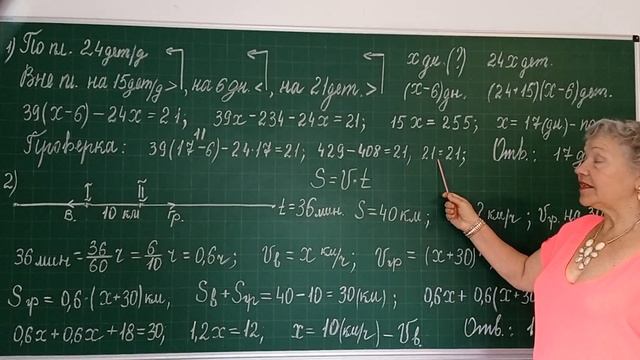 1) По пл. 24дет/д х дн. (?) 24х дет.
Вне пл. на 15дет/д >, на 6 дн. <, на 21дет. > (х-6)дн. (24+15)(х-6)дет.
39(х-6)-24х=21; 39х-234-24х=21; 15х=255; х=17(дн)-по
Проверка: 39(17-6)-24·17=21; 429-408=21, 21=21; Отв.: 17д
11
2) S=V·t
I II
В. 10 км Гр. t=36мин. S=40км; ? км/ч; Vгр. на 30
36мин=36/60 ч=6/10 ч=0,6ч; Vв=х км/ч; Vгр=(х+30)
Sгр=0,6·(х+30)км, Sв+Sгр=40-10=30(км); 0,6х+0,6(х+30
0,6х+0,6х+18=30, 1,2х=12, х=10(км/ч)-Vв. Отв.: 1